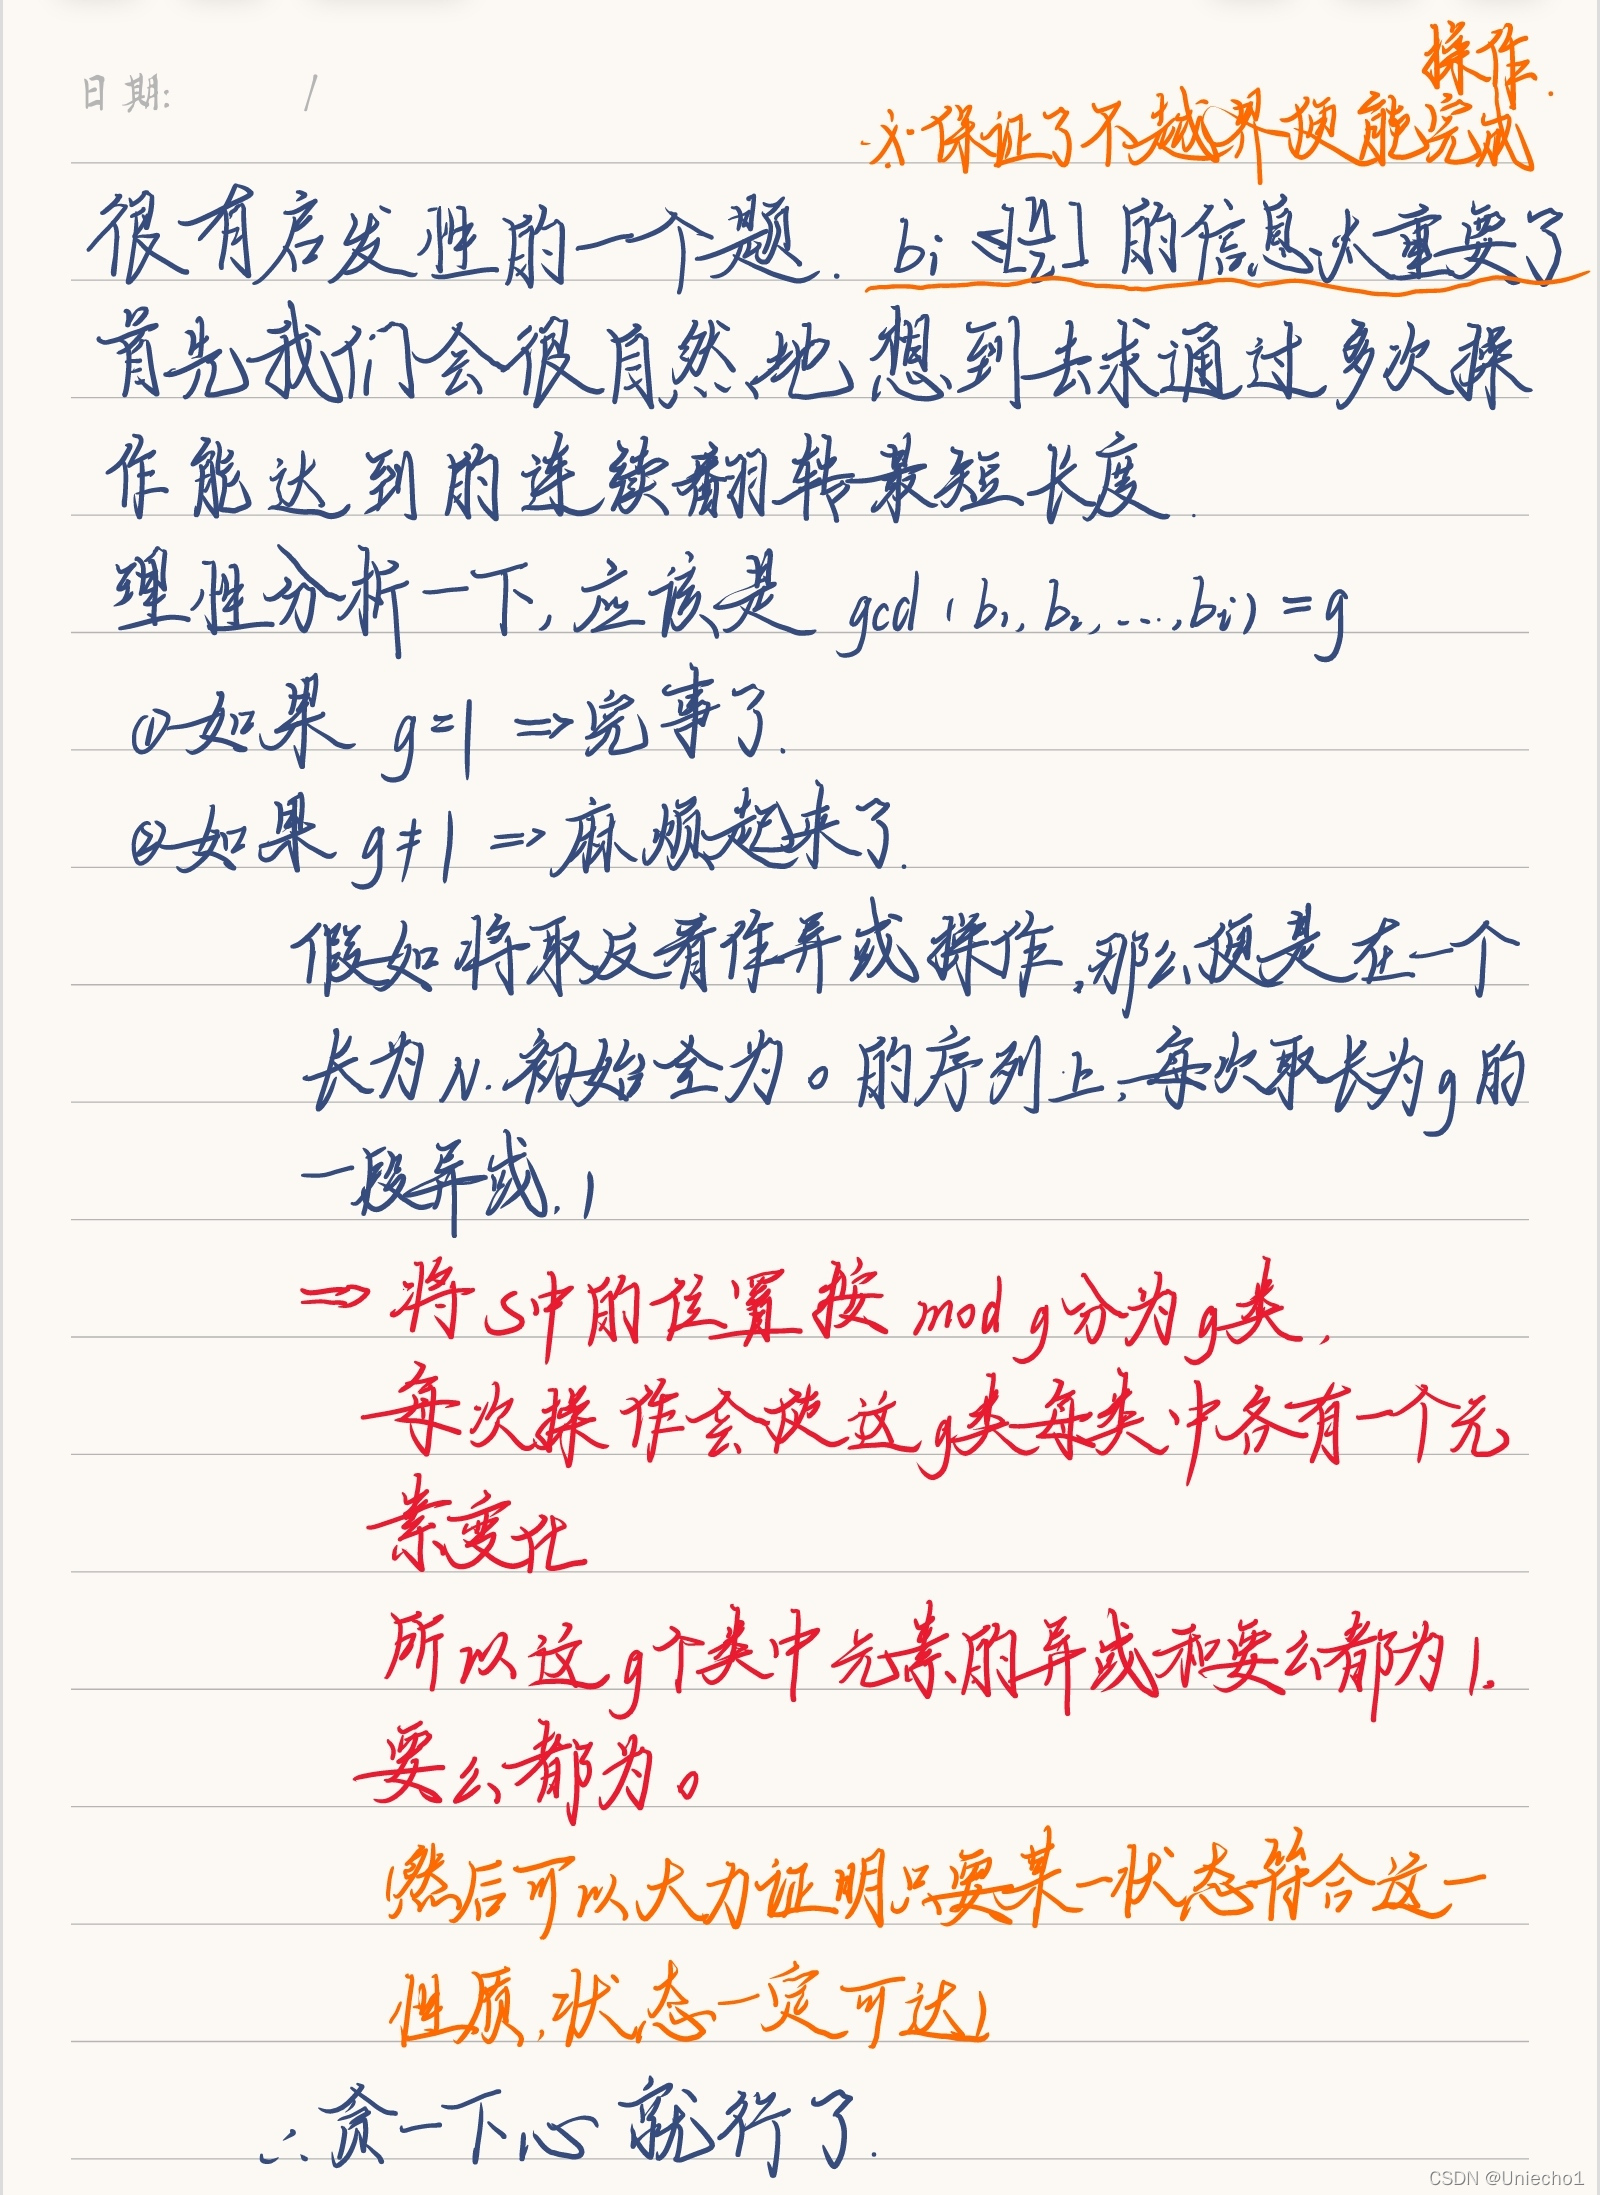 日期: /
操作.
∴保证了不越界便能完成
很有启发性的一个题. bi ≤[n/2]的信息太重要了
首先我们会很自然地想到去求通过多次操
作能达到的连续翻转最短长度.
理性分析一下,应该是 gcd(b1,b2,...,bi)=g
①如果 g=1 ⇒完事了.
②如果 g≠1 ⇒麻烦起来了.
假如将取反看作异或操作,那么便是在一个
长为N.初始全为0的序列上,每次取长为g的
一段异或.1
⇒将S中的位置按 mod g分为g类,
每次操作会使这g类每类中各有一个元
素变化
所以这g个类中元素的异或和要么都为1.
要么都为0
(然后可以大力证明只要某一状态符合这一
性质,状态一定可达)
∴贪一下心就行了.
CSDN @Uniecho1